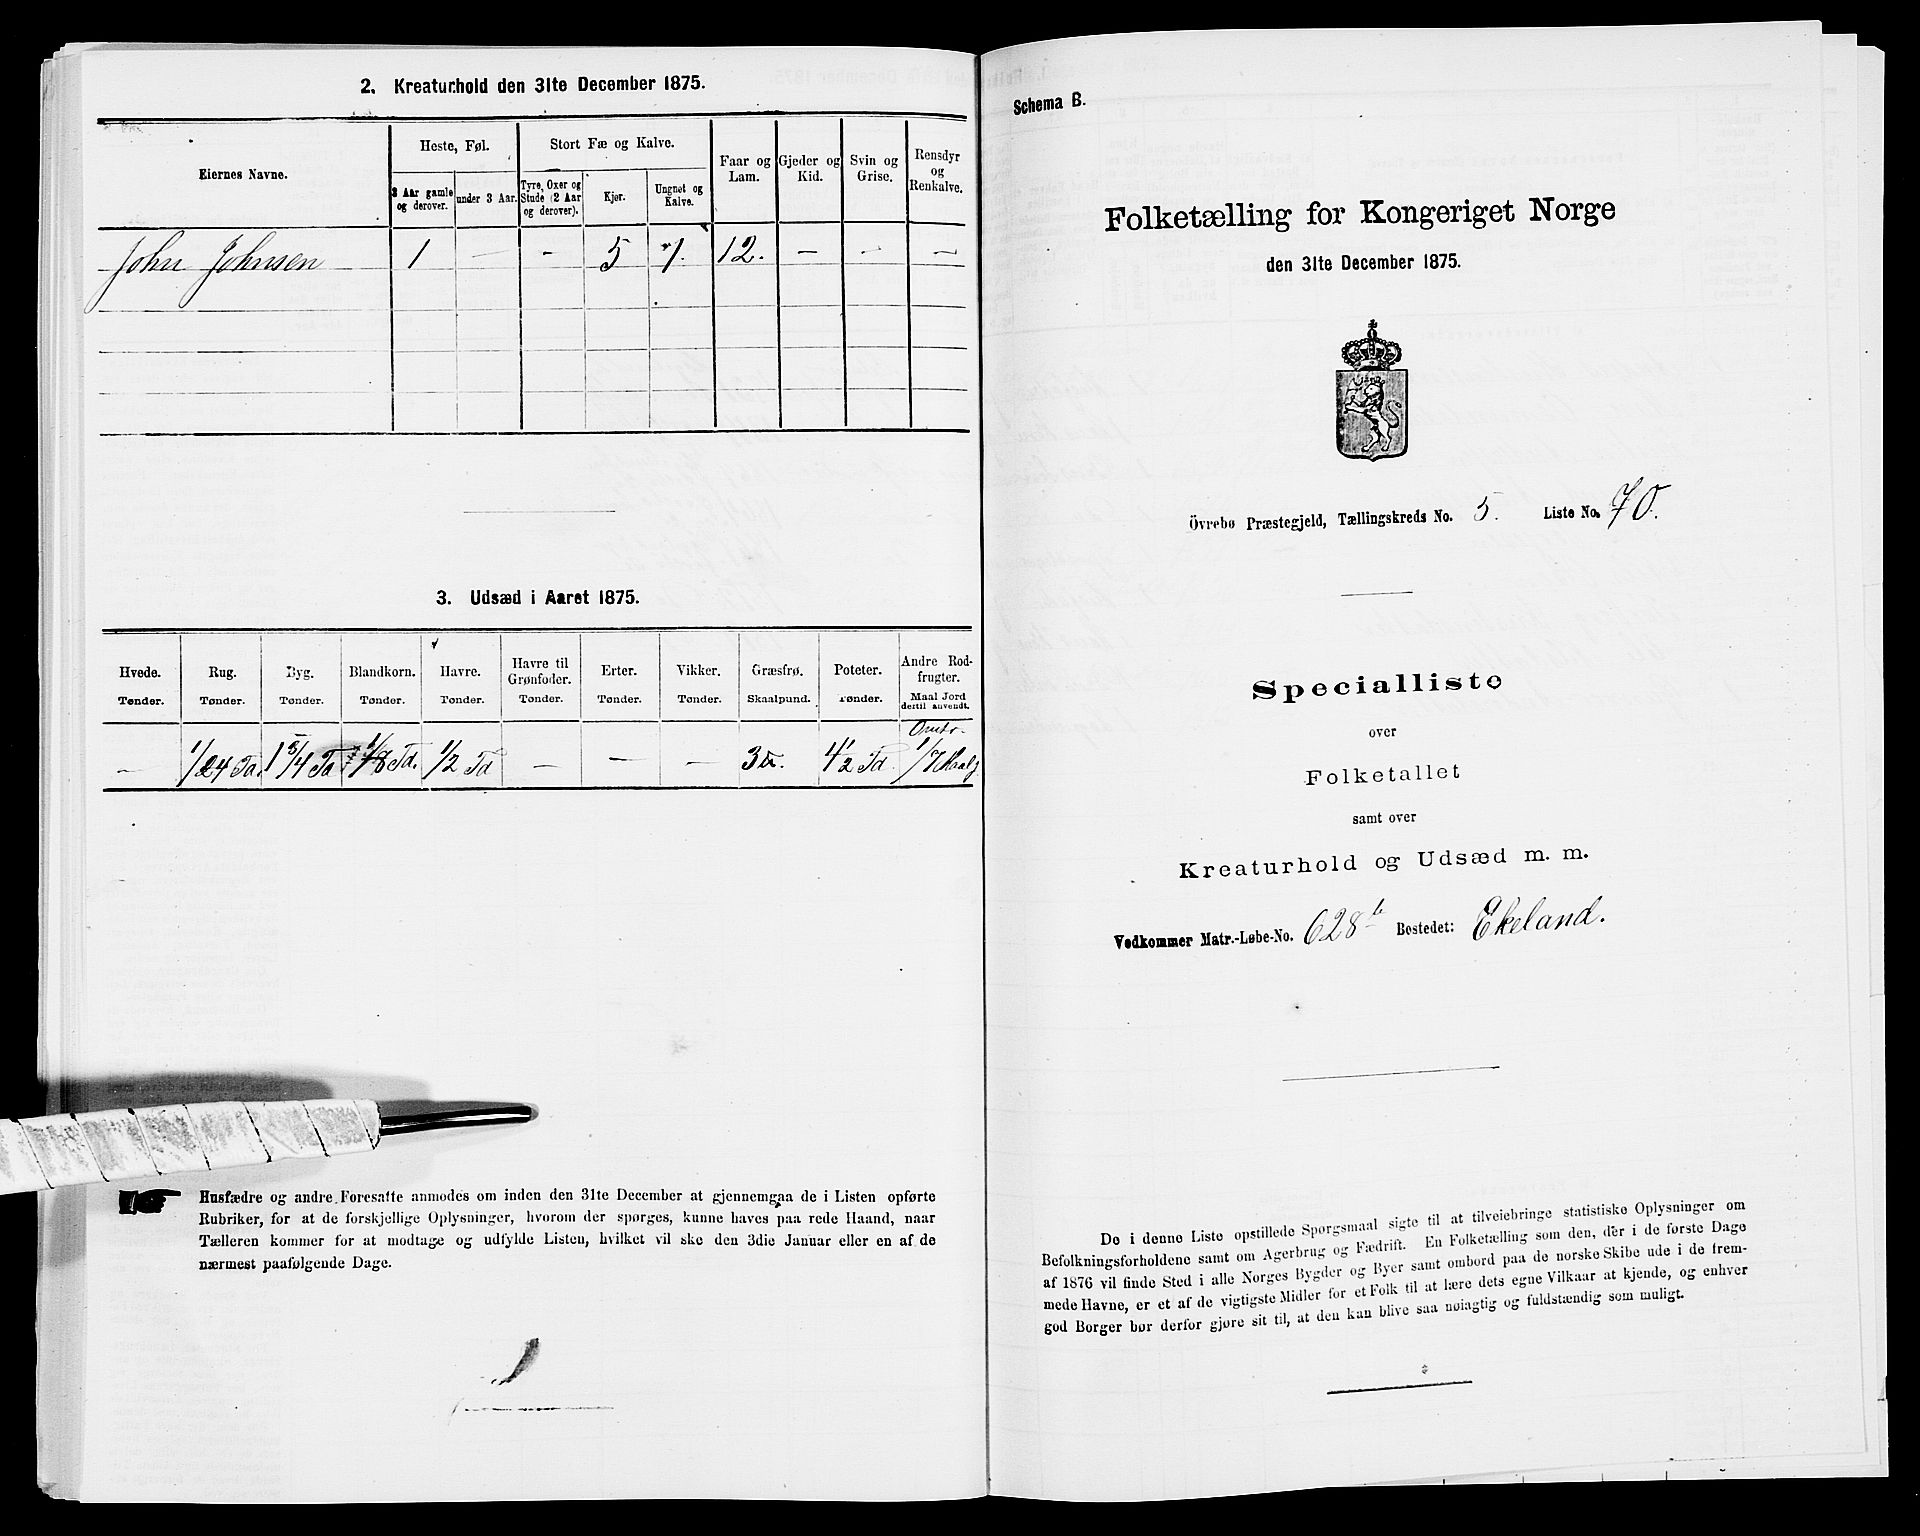 2. Kreaturhold den 31te December 1875.
Eiernes Navne.
Heste, Føl.
Stort Fæ og Kalve.
Faar og Lam.
Gjeder og Kid.
Svin og Grise.
Rensdyr og Renkalve.
3 Aar gamle og derover.
under 3 Aar.
Tyre, Oxer og Stude (2 Aar og derover).
Kjør.
Ungnet og Kalve.
John Johnsen 1 — - 5 1. 12. — — —
3. Udsæd i Aaret 1875.
Hvede. Rug. Byg. Blandkorn. Havre. Havre til Grønfoder. Erter. Vikker. Græsfrø. Poteter. Andre Rodfrugter.
Tønder. Tønder. Tønder. Tønder. Tønder. Tønder. Tønder. Tønder. Skaalpund. Tønder. Maal Jord dertil anvendt.
— 1/24 Td. 1 3/4 Td 1/8 Td. 1/2 Td — — — 3 ℔. 4 1/2 Td 1/7 Maal
Husfædre og andre Foresatte anmodes om inden den 31te December at gjennemgaa de i Listen opførte
Rubriker, for at de forskjellige Oplysninger, hvorom der spørges, kunne haves paa rede Haand, naar
Tælleren kommer for at modtage og udfylde Listen, hvilket vil ske den 3die Januar eller en af de
nærmest paafølgende Dage.
Schema B.
Folketælling for Kongeriget Norge
den 31te December 1875.
Övrebø Præstegjeld, Tællingskreds No. 5. Liste No. 70.
Specialliste
over
Folketallet
samt over
Kreaturhold og Udsæd m. m.
Vedkommer Matr.-Løbe-No. 628 b Bostedet: Ekeland.
De i denne Liste opstillede Spørgsmaal sigte til at tilveiebringe statistiske Oplysninger om
Befolkningsforholdene samt om Agerbrug og Fædrift. En Folketælling som den, der i de første Dage
af 1876 vil finde Sted i alle Norges Bygder og Byer samt ombord paa de norske Skibe ude i de frem-
mede Havne, er et af de vigtigste Midler for et Folk til at lære dets egne Vilkaar at kjende, og enhver
god Borger bør derfor gjøre sit til, at den kan blive saa nøiagtig og fuldstændig som muligt.